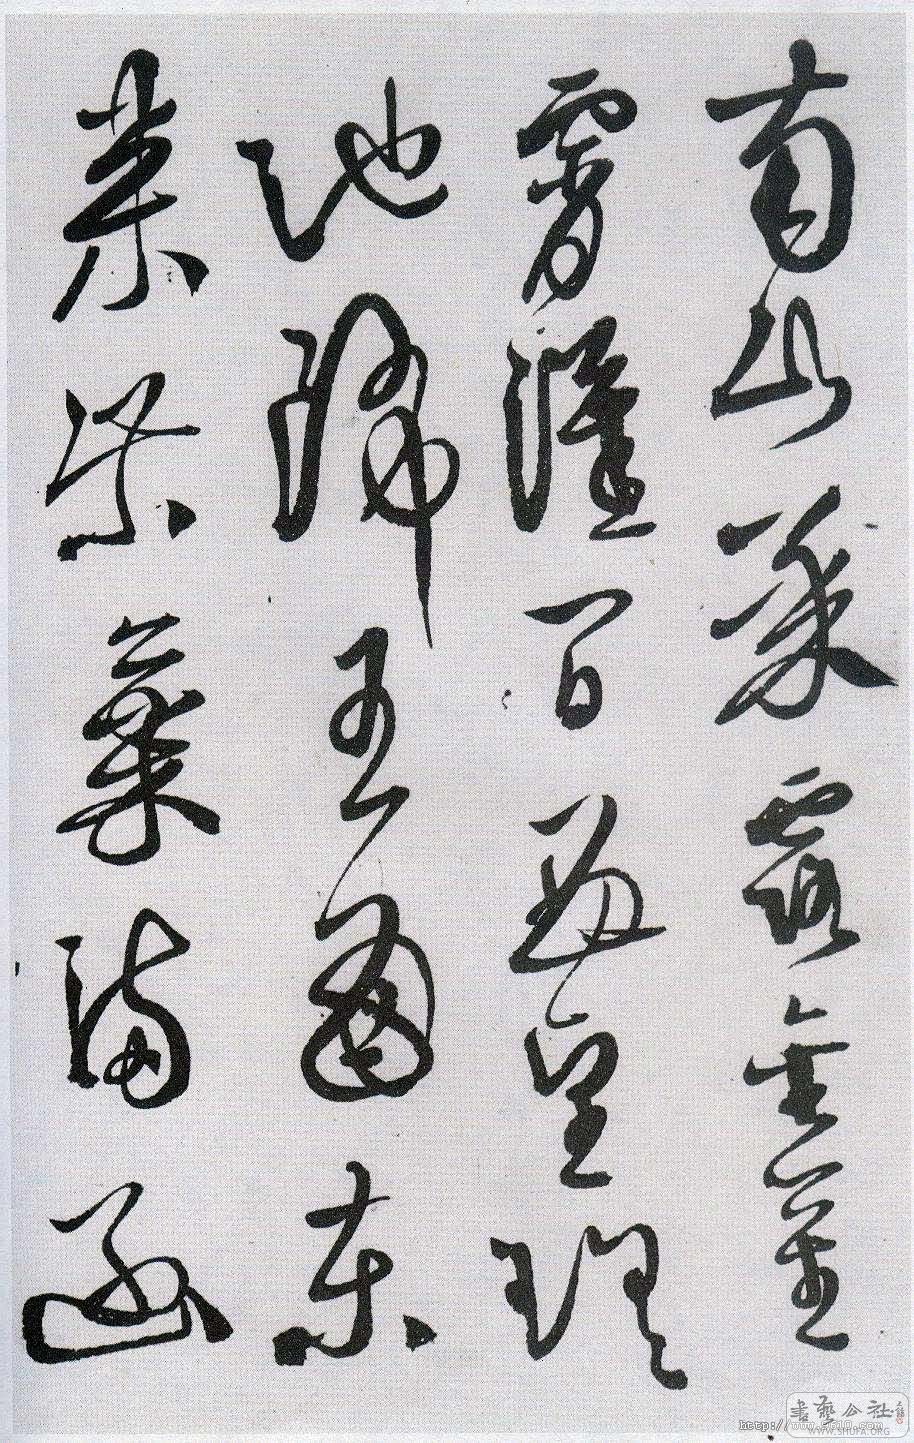 南山承露金莖
霄漢間西望瑤
池降王母東
來紫氣滿函
書藝公社
http://www.9610.com
WWW.SHUFA.ORG